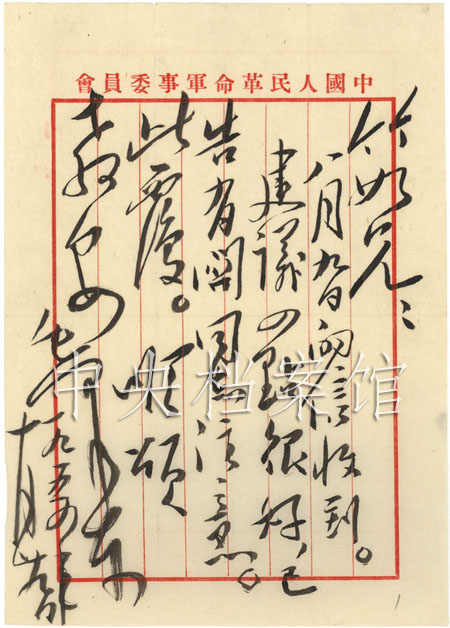 中國人民革命軍事委員會
竹如兄：
八月九日的信收到。
建議四點很好，已
告有關同志注意。
此覆。順頌
教安
毛澤東
一九五〇
十月
中央档案馆